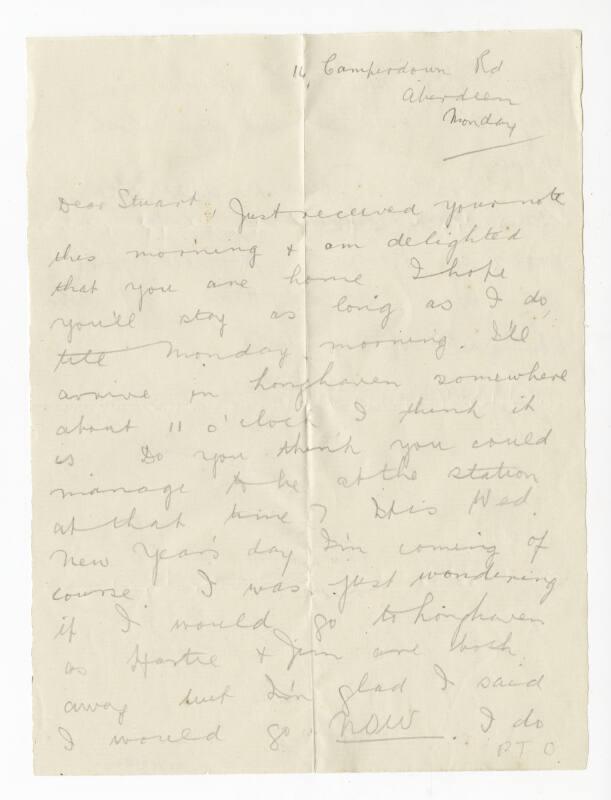 14, Camperdown Rd
Aberdeen
Monday
Dear Stuart, Just received your note
this morning & am delighted
that you are home I hope
you'll stay as long as I do,
till Monday morning. I'll
arrive in Longhaven somewhere
about 11 o'clock I think it
is Do you think you could
manage to be at the station
at that time? It is Wed.
New Year's day I'm coming of
course. I was just wondering
if I would go to Longhaven
as & Jim are both
away but I'm glad I said
I would go NOW. I do
P.T.O